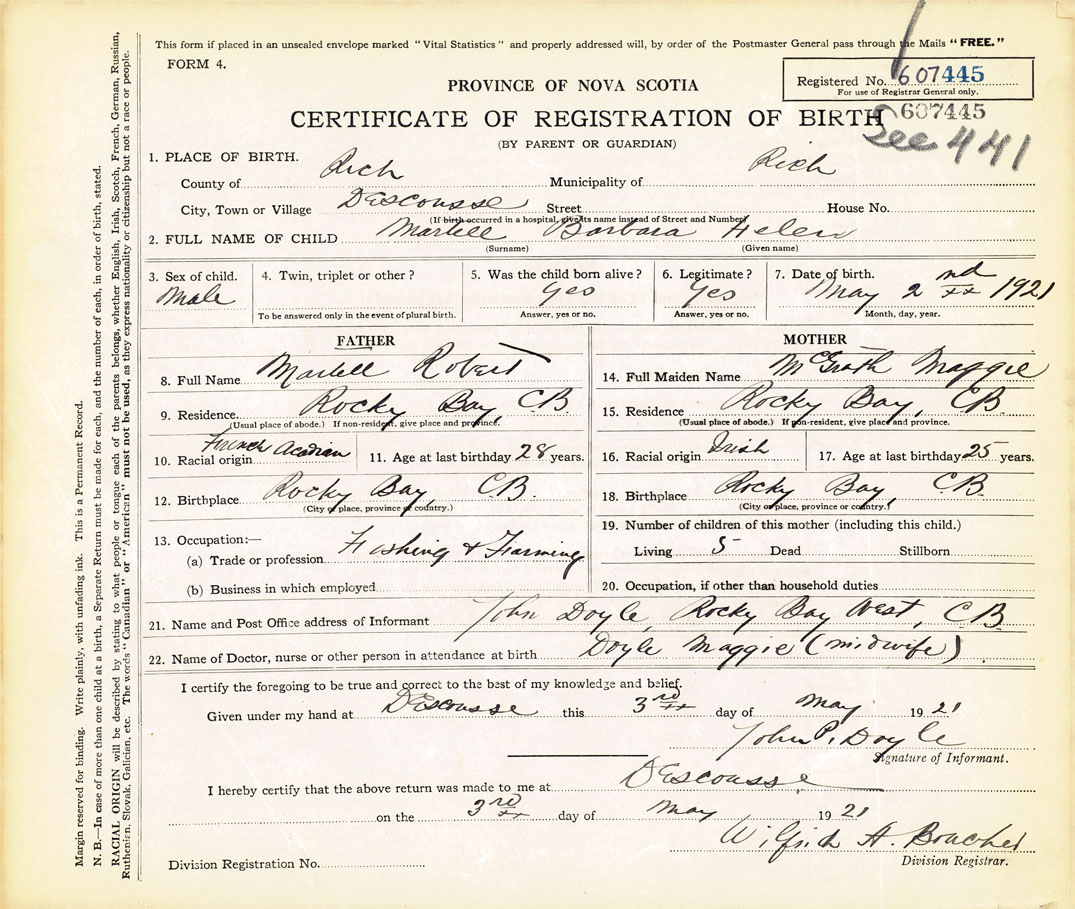 This form if placed in an unsealed envelope marked "Vital Statistics" and properly addressed will, by order of the Postmaster General pass through the Mails "FREE."
FORM 4.
Registered No. 607445
For use of Registrar General only.
PROVINCE OF NOVA SCOTIA
607445
CERTIFICATE OF REGISTRATION OF BIRTH
See 441
(BY PARENT OR GUARDIAN)
1. PLACE OF BIRTH.
County of Rich Municipality of Rich
City, Town or Village DEscousse Street House No.
(If birth occurred in a hospital, give its name instead of Street and Number)
2. FULL NAME OF CHILD Martell Barbara Helen
(Surname) (Given name)
3. Sex of child. 4. Twin, triplet or other? 5. Was the child born alive? 6. Legitimate? 7. Date of birth.
Male Yes Yes May 2nd 1921
To be answered only in the event of plural birth. Answer, yes or no. Answer, yes or no. Month, day, year.
FATHER
8. Full Name Martell Robert
9. Residence. Rocky Bay, CB
(Usual place of abode.) If non-resident, give place and province.
10. Racial origin French Acadian 11. Age at last birthday 28 years.
12. Birthplace Rocky Bay, C.B.
(City or place, province or country.)
13. Occupation:—
(a) Trade or profession Fishing & Farming
(b) Business in which employed
MOTHER
14. Full Maiden Name McGrath Maggie
15. Residence Rocky Bay, CB
(Usual place of abode.) If non-resident, give place and province.
16. Racial origin Irish 17. Age at last birthday 25 years.
18. Birthplace Rocky Bay, C.B.
(City or place, province or country.)
19. Number of children of this mother (including this child.)
Living 5 Dead Stillborn
20. Occupation, if other than household duties
21. Name and Post Office address of Informant John Doyle, Rocky Bay West, C.B.
22. Name of Doctor, nurse or other person in attendance at birth Doyle Maggie (midwife)
I certify the foregoing to be true and correct to the best of my knowledge and belief.
Given under my hand at DEscousse this 3rd day of May 1921
John P. Doyle
Signature of Informant.
I hereby certify that the above return was made to me at DEscousse
on the 3rd day of May 1921
Wilfrid A.
Division Registration No. Division Registrar.
Margin reserved for binding. Write plainly, with unfading ink. This is a Permanent Record.
N. B.—In case of more than one child at a birth, a Separate Return must be made for each, and the number of each, in order of birth, stated.
RACIAL ORIGIN will be described by stating to what people or tongue each of the parents belongs, whether English, Irish, Scotch, French, German, Russian,
Ruthenian, Slovak, Galician, etc. The words "Canadian" or "American" must not be used, as they express nationality or citizenship but not a race or people.